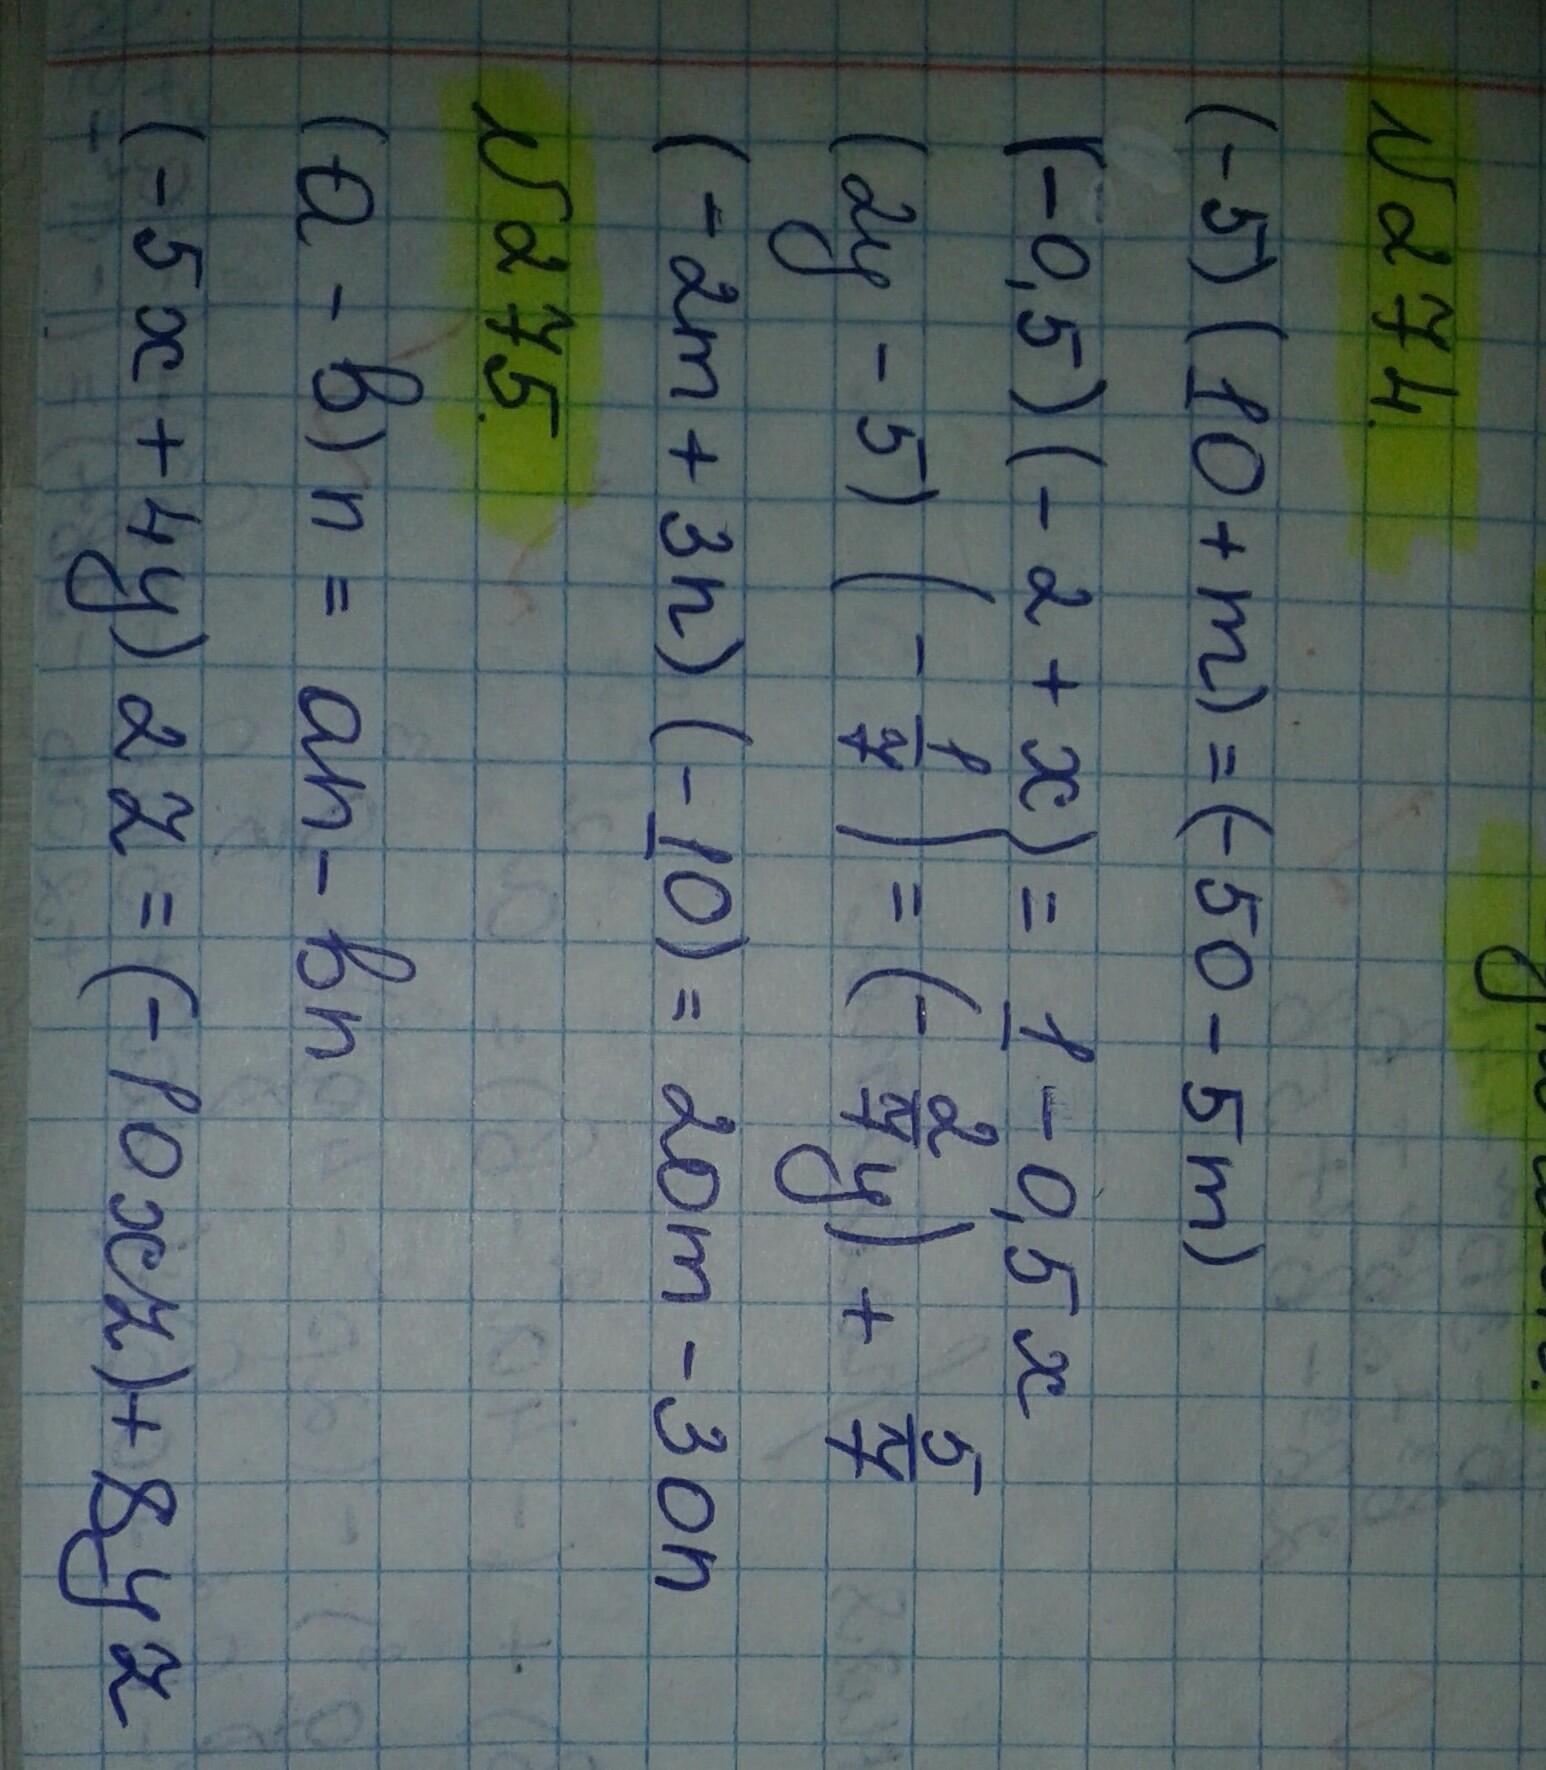 №274.
(-5)(10+m)=(-50-5m)
(-0,5)(-2+x)=1-0,5x
(2y-5)(-1/7)=(-2/7y)+5/7
(-2m+3n)(-10)=20m-30n
№275.
(a-b)n=an-bn
(-5x+4y)2z=(-10xz)+8yz